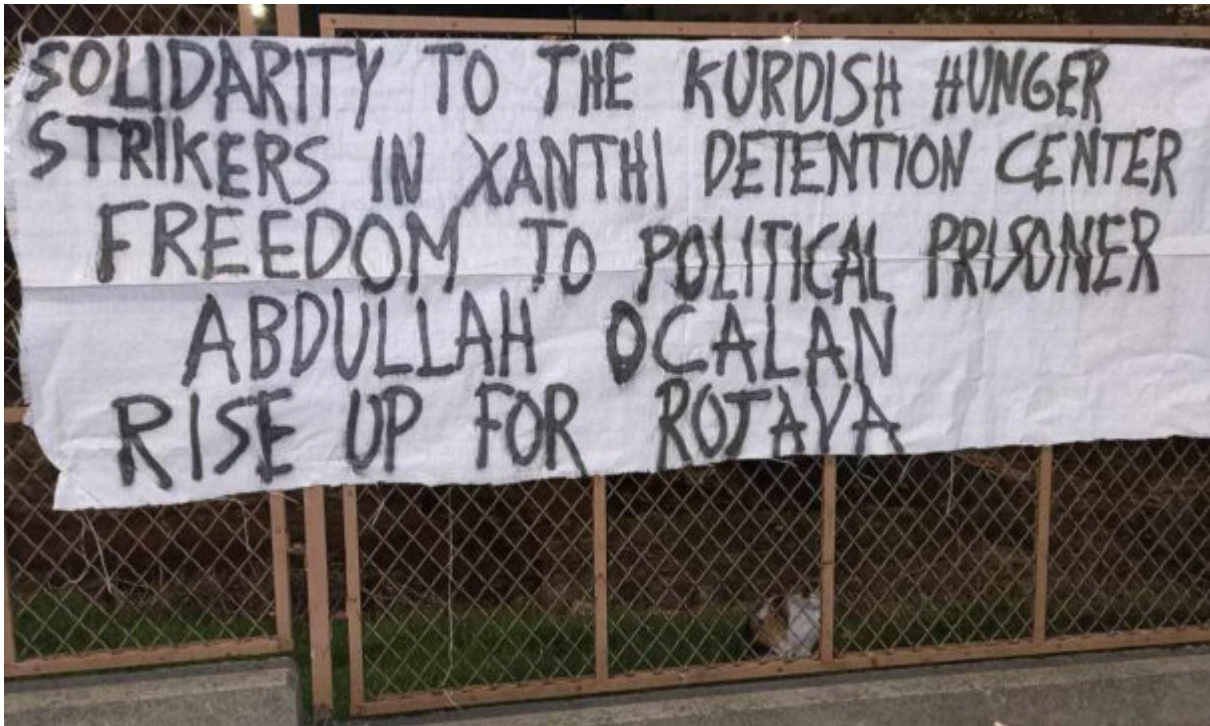 SOLIDARITY TO THE KURDISH HUNGER
STRIKERS IN XANTHI DETENTION CENTER
FREEDOM TO POLITICAL PRISONER
ABDULLAH OCALAN
RISE UP FOR ROJAVA